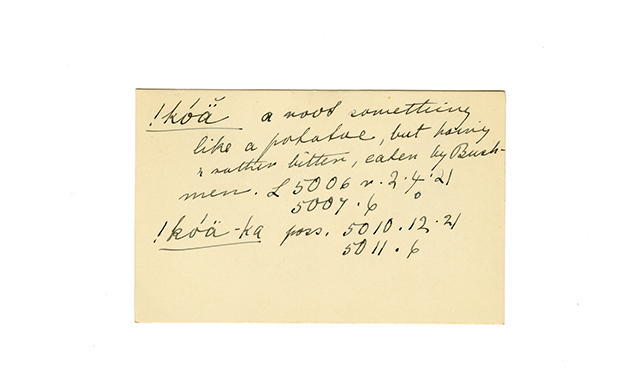 !kóä̆ a root something
like a potatoe, but being
rather bitter, eaten by Bush-
men. L 5006 r. 2.4.21
5007.6
!kóä-ka poss. 5010.12.21
5011.6